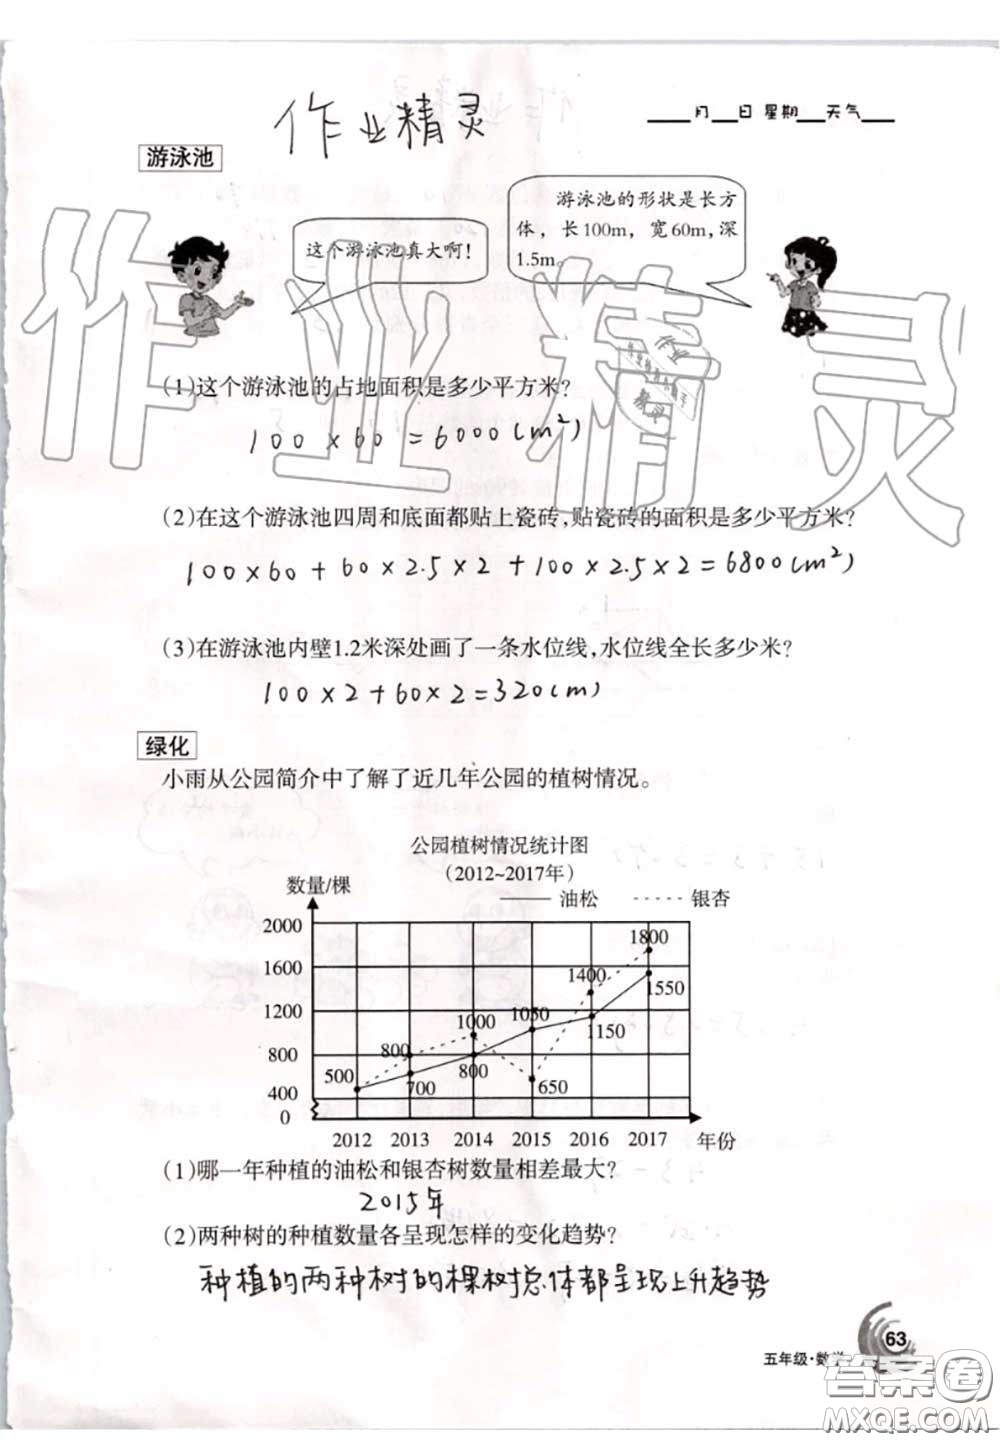 作业精灵
____月___日 星期___天气____
游泳池
这个游泳池真大啊！
游泳池的形状是长方
体，长100m，宽60m，深
1.5m。
作业精灵
(1)这个游泳池的占地面积是多少平方米？
100×60=6000(m²)
(2)在这个游泳池四周和底面都贴上瓷砖，贴瓷砖的面积是多少平方米？
100×60+60×2.5×2+100×2.5×2=6800(m²)
(3)在游泳池内壁1.2米深处画了一条水位线，水位线全长多少米？
100×2+60×2=320(m)
绿化
小雨从公园简介中了解了近几年公园的植树情况。
公园植树情况统计图
(2012~2017年)
数量/棵
油松 银杏
2000
1600
1200
800
400
0
500
800
700
1000
800
1050
650
1400
1150
1800
1550
2012 2013 2014 2015 2016 2017 年份
(1)哪一年种植的油松和银杏树数量相差最大？
2015年
(2)两种树的种植数量各呈现怎样的变化趋势？
种植的两种树的棵树总体都呈现上升趋势
63
五年级·数学
答案卷
MXQE.COM